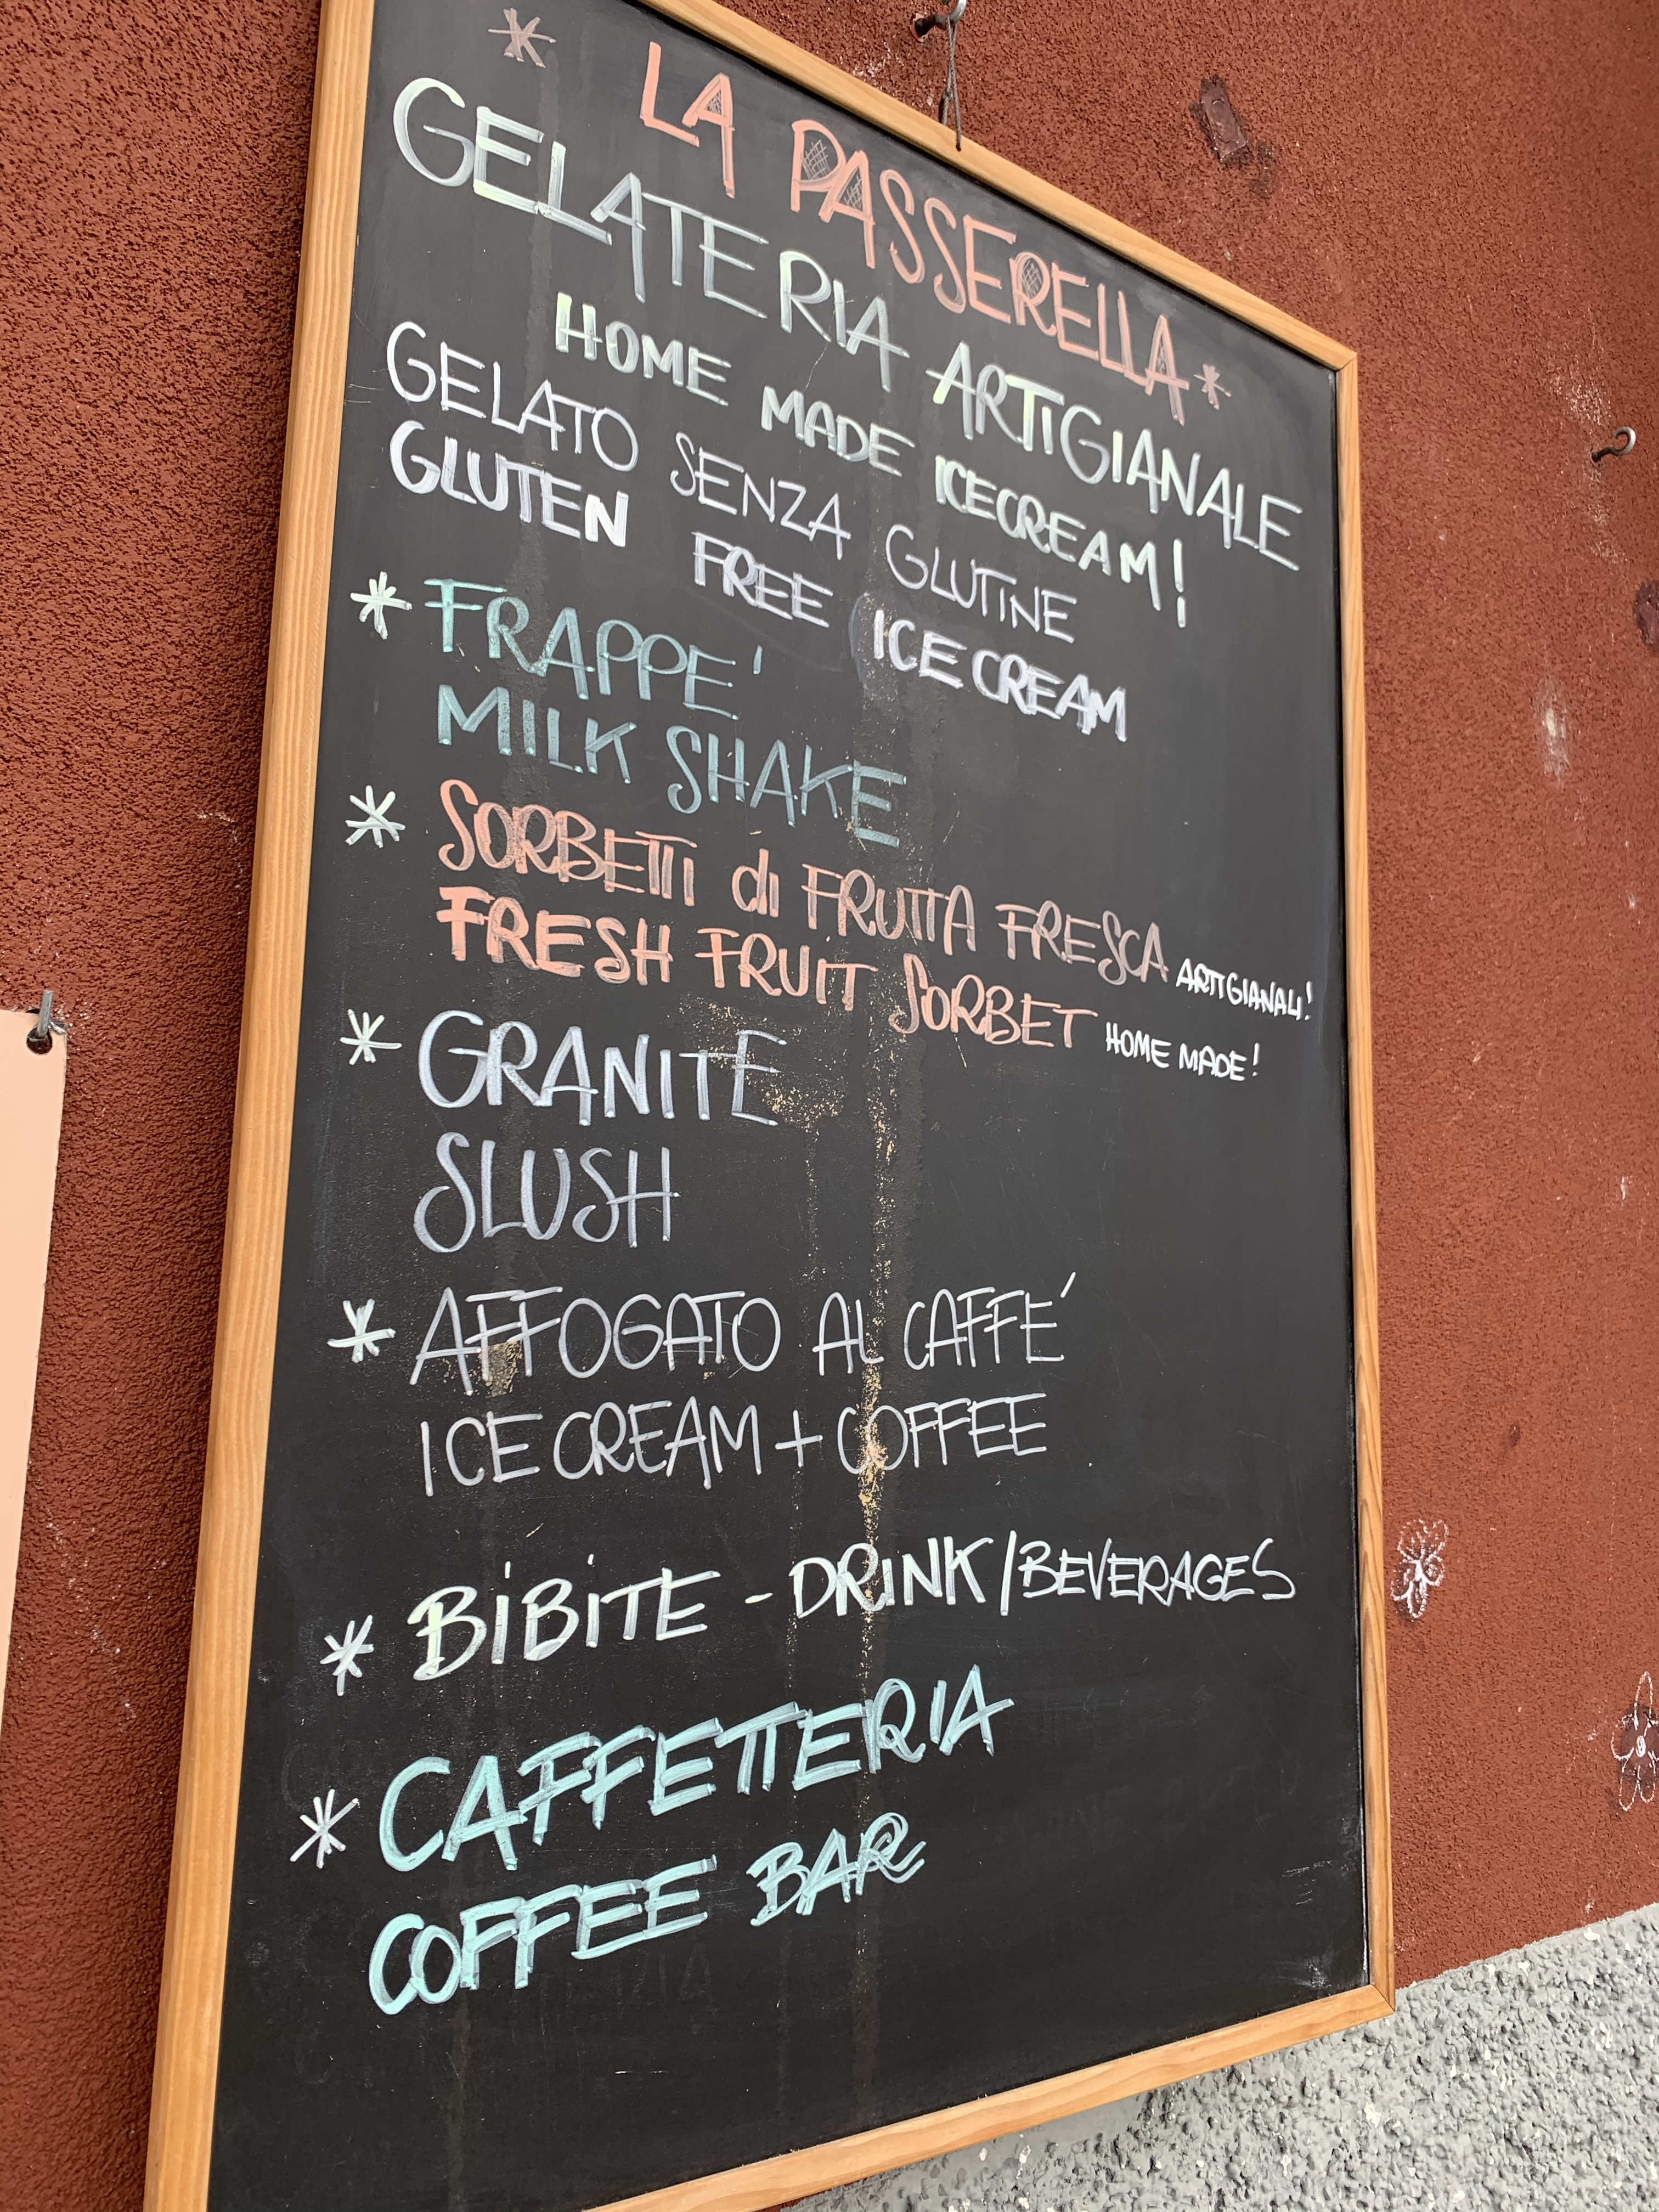 * LA PASSERELLA *
GELATERIA ARTIGIANALE
HOME MADE ICECREAM!
GELATO SENZA GLUTINE
GLUTEN FREE ICE CREAM
* FRAPPE'
MILK SHAKE
* SORBETTI di FRUTTA FRESCA ARTIGIANALI!
FRESH FRUIT SORBET HOME MADE!
* GRANITE
SLUSH
* AFFOGATO AL CAFFE'
ICE CREAM + COFFEE
* BIBITE - DRINK/BEVERAGES
* CAFFETTERIA
COFFEE BAR